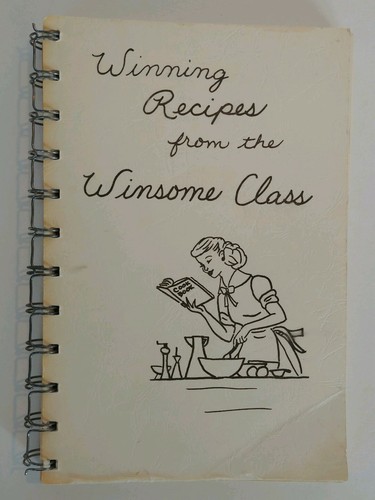 Winning
Recipes
from the
Winsome Class
COOK
BOOK